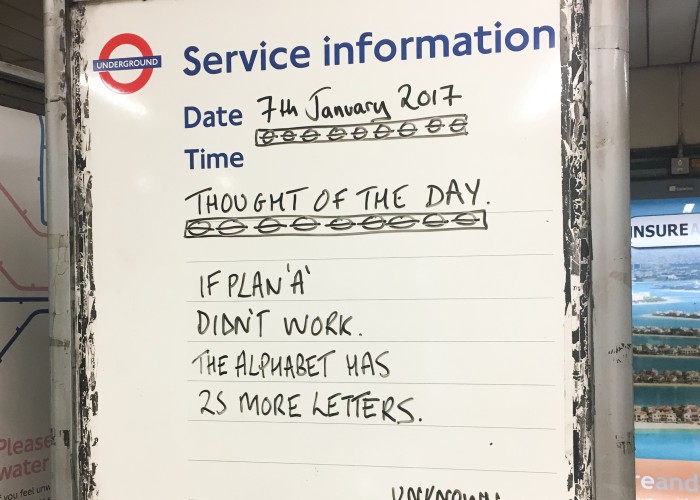 UNDERGROUND
Service information
Date 7th January 2017
Time
THOUGHT OF THE DAY.
IF PLAN 'A'
DIDN'T WORK.
THE ALPHABET HAS
25 MORE LETTERS.
UNKNOWN
Please
water
if you feel
INSURE